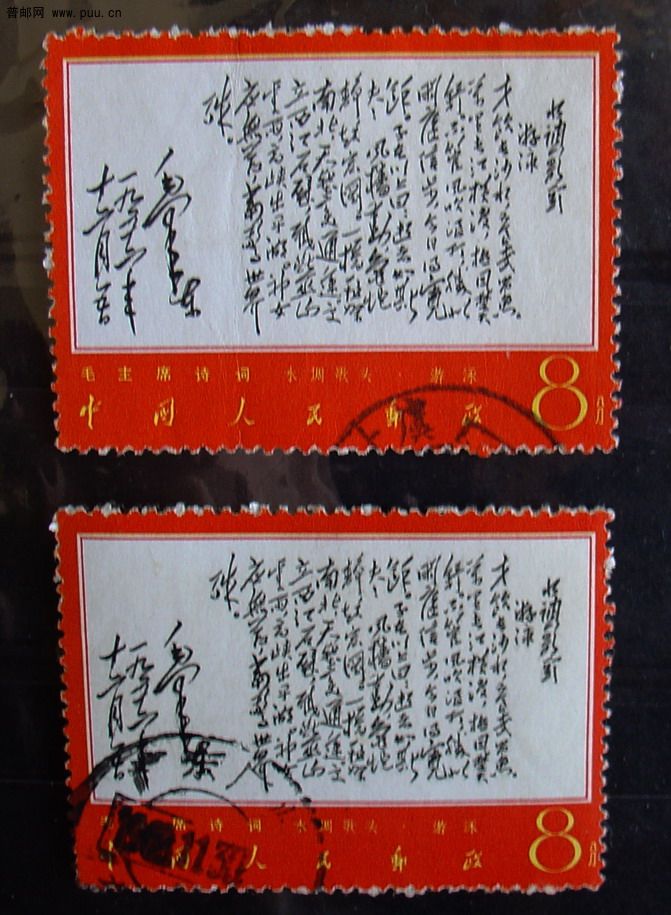 普邮网 www.puu.cn
水调歌头
游泳
才饮长沙水又食武昌鱼
万里长江横渡极目楚天
舒不管风吹浪打胜似
闲庭信步今日得宽
余子在川上曰逝者如斯
夫风樯动龟蛇
静起宏图一桥飞架
南北天堑变通途更
立西江石壁截断巫山
云雨高峡出平湖神女
应无恙当惊世界
殊
毛泽东
一九五六年
十二月五日
毛主席诗词 水调歌头·游泳
中国人民邮政
8分
水调歌头
游泳
才饮长沙水又食武昌鱼
万里长江横渡极目楚天
舒不管风吹浪打胜似
闲庭信步今日得宽
余子在川上曰逝者如斯
夫风樯动龟蛇
静起宏图一桥飞架
南北天堑变通途更
立西江石壁截断巫山
云雨高峡出平湖神女
应无恙当惊世界
殊
毛泽东
一九五六年
十二月五日
毛主席诗词 水调歌头·游泳
中国人民邮政
8分